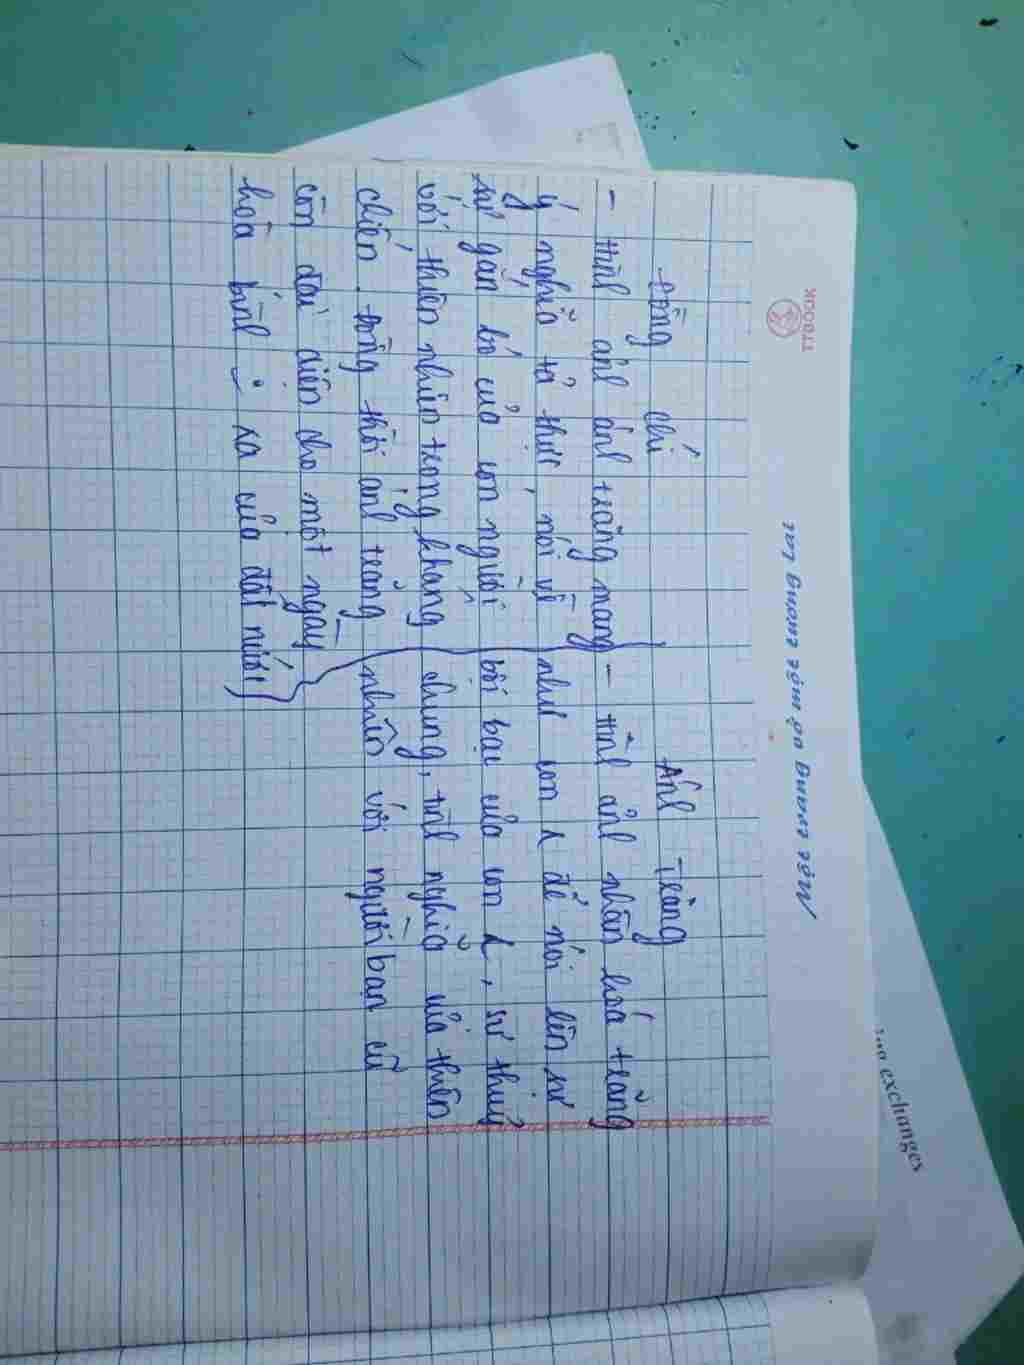 TTBOOK
Một Quãng có một Quãng Lao
Đồng chí
Ánh Trăng
- Hình ảnh ánh trăng mang
ý nghĩa tả thực, nói về
sự gắn bó của con người
với thiên nhiên trong kháng
chiến. đồng thời ánh trăng
còn đại diện cho một ngày
hoà bình xa của đất nước
- Hình ảnh nhân hoá trăng
như con để nói lên sự
bội bạc của con , sự thuỷ
chung, tình nghĩa của thiên
nhiên với người bạn cũ
exchanges